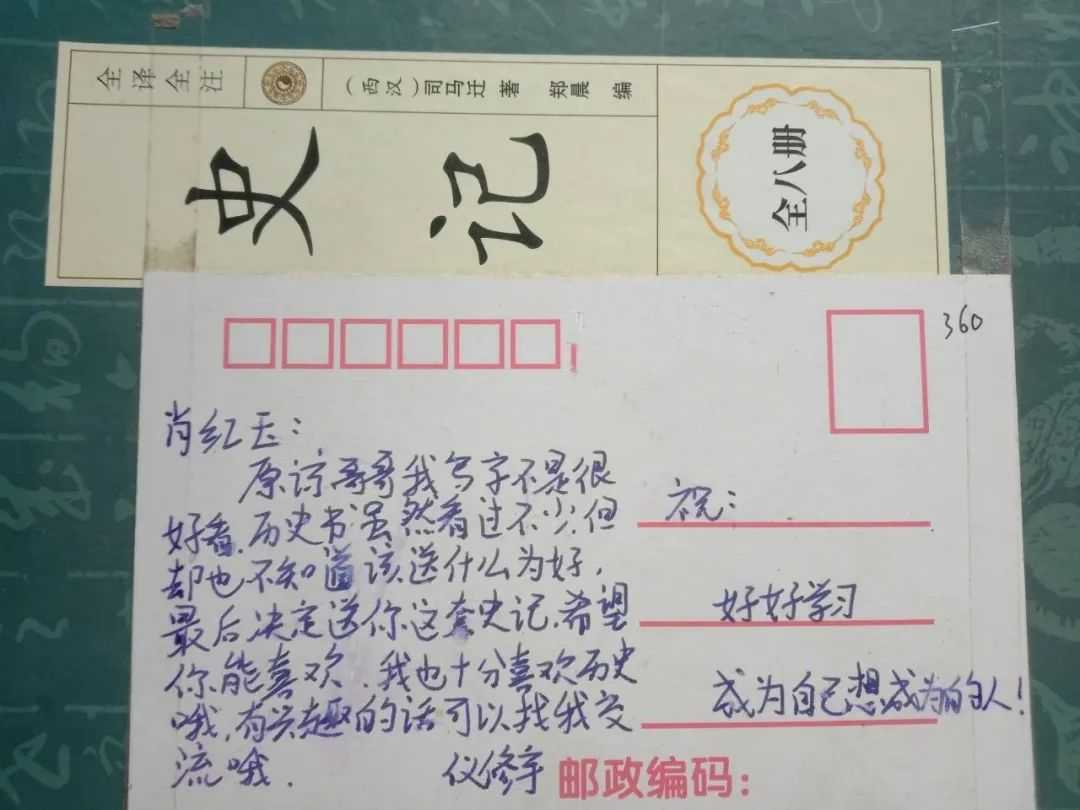 全译全注
(西汉)司马迁 著 郑晨 编
史记
全八册
360
肖红玉：
原谅哥哥我写字不是很
好看，历史书虽然看过不少，但
却也不知道该送什么为好，
最后决定送你这套史记，希望
你能喜欢，我也十分喜欢历史
哦，有兴趣的话可以找我交
流哦．
祝：
好好学习
成为自己想成为的人！
邮政编码：